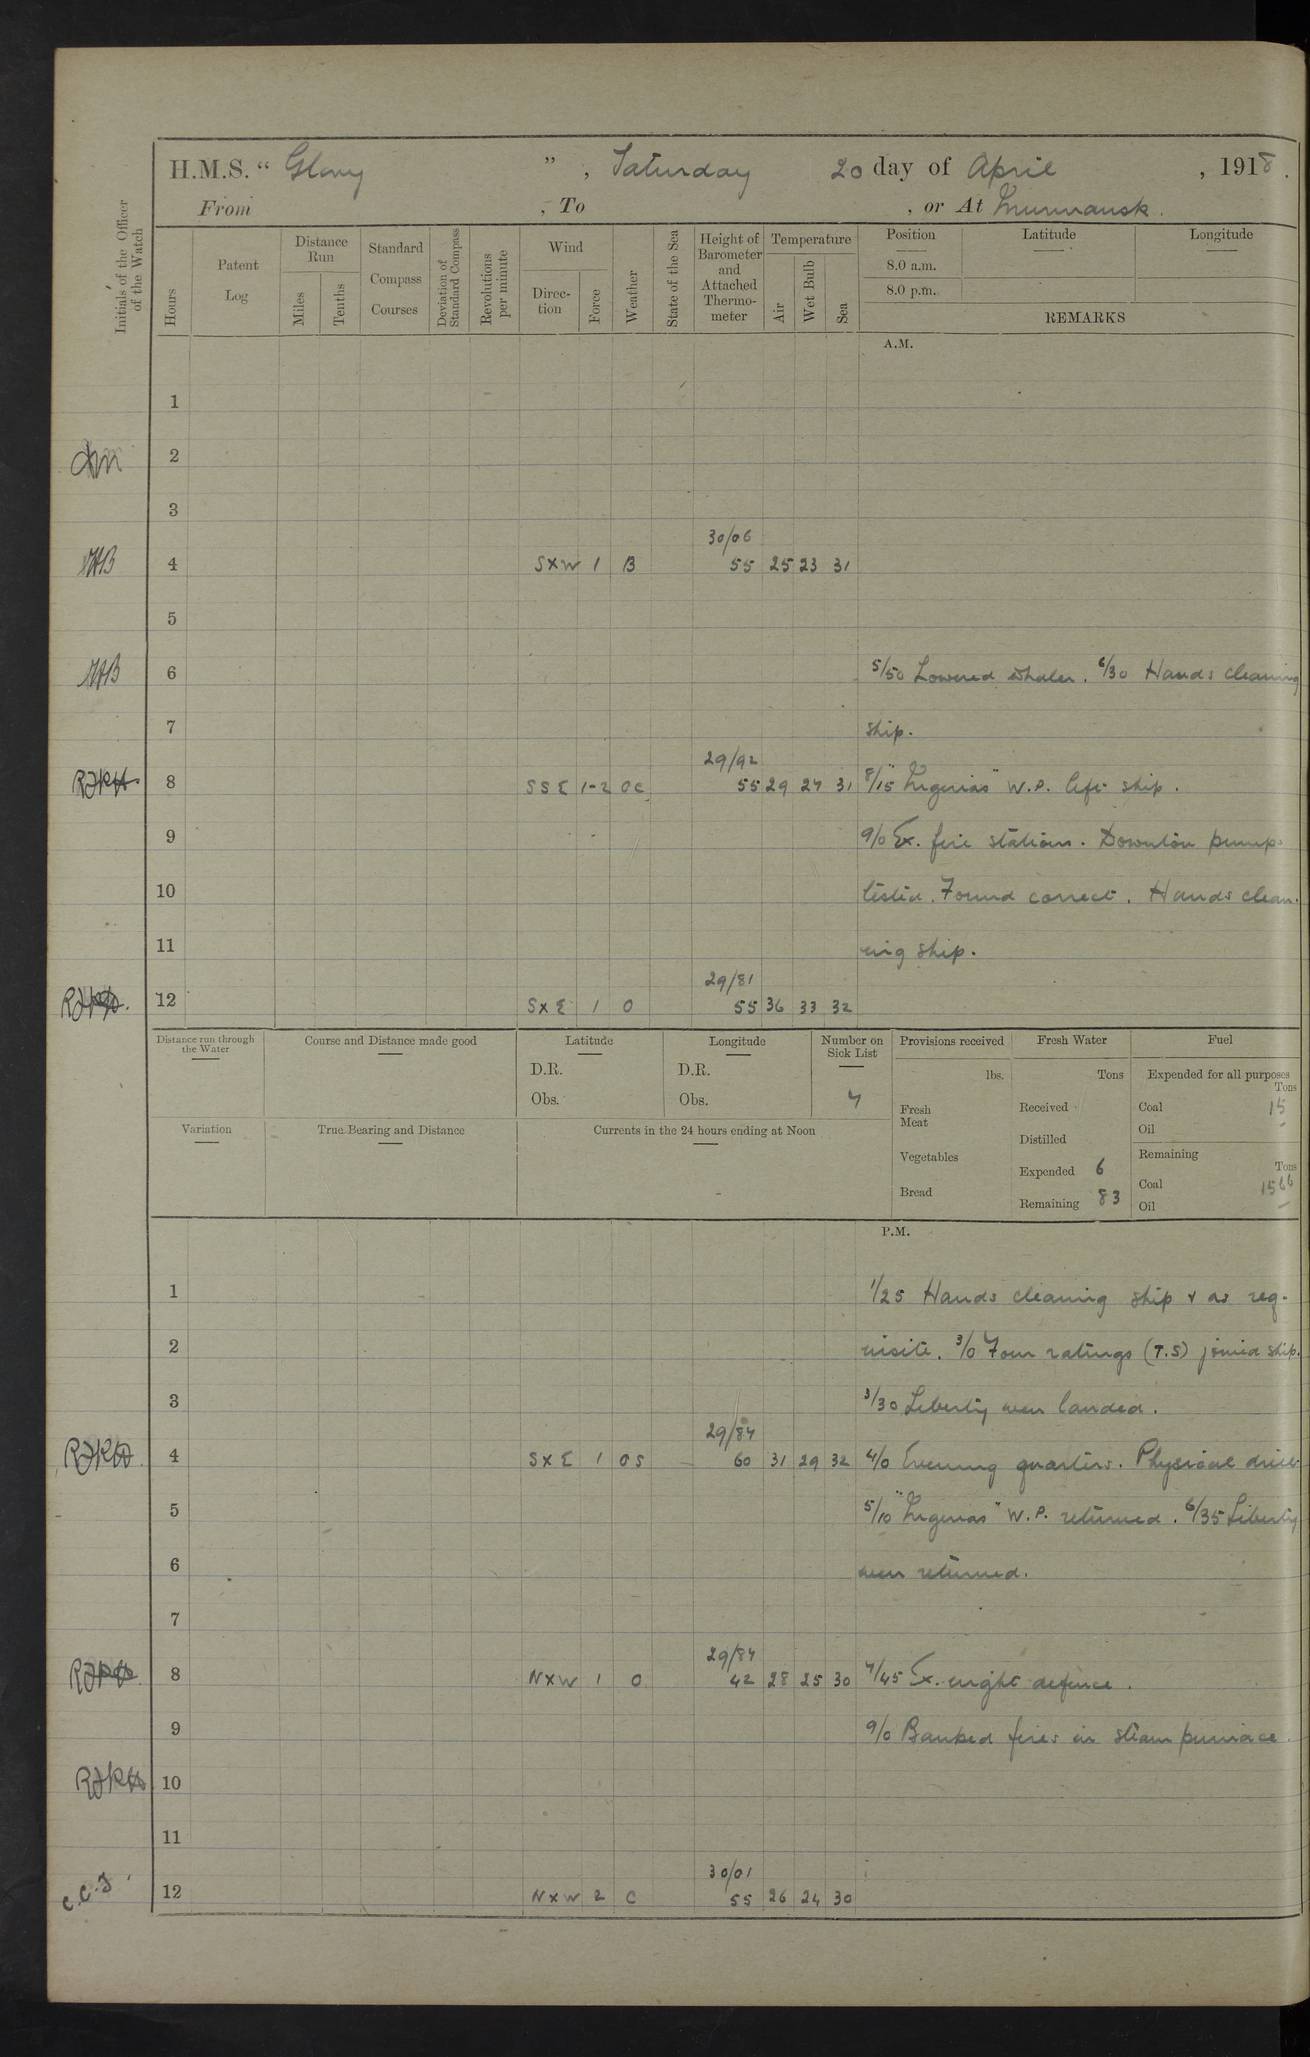 H.M.S. " Glory ", Saturday 20 day of April, 1918.
From , To , or At Murmansk.
Initials of the Officer of the Watch
Hours
Patent Log
Distance Run
Miles
Tenths
Standard Compass Courses
Deviation of Standard Compass
Revolutions per minute
Wind
Direction
Force
Weather
State of the Sea
Height of Barometer and Attached Thermometer
Temperature
Air
Wet Bulb
Sea
Position
8.0 a.m.
8.0 p.m.
Latitude
Longitude
REMARKS
A.M.
1
2
3
30/06
4 SXW 1 B 55 25 23 31
5
6 5/50 Lowered whaler. 6/30 Hands cleaning
7 ship.
29/92
RJKH 8 SSE 1-2 OC 55 29 27 31 8/15 W.P. left ship.
9 9/0 Ex. fire stations. Downton pumps
10 tested. Found correct. Hands clean-
11 ing ship.
29/81
12 SXE 1 O 55 36 33 32
Distance run through the Water
Course and Distance made good
Latitude
D.R.
Obs.
Longitude
D.R.
Obs.
Number on Sick List
7
Provisions received
lbs.
Fresh Meat
Vegetables
Bread
Fresh Water
Tons
Received
Distilled
Expended 6
Remaining 83
Fuel
Expended for all purposes
Tons
Coal 15
Oil -
Remaining
Tons
Coal 1566
Oil -
Variation
True Bearing and Distance
Currents in the 24 hours ending at Noon
P.M.
1 1/25 Hands cleaning ship & as req-
2 uisite. 3/0 Four ratings (T.S) joined ship.
3 3/30 Liberty men landed.
29/84
RJKH 4 SXE 1 OS 60 31 29 32 4/0 Evening quarters. Physical drill
5 5/10 W.P. returned. 6/35 Liberty
6 men returned.
7
29/87
RJKH 8 NXW 1 O 42 28 25 30 7/45 Ex. night defence.
9 9/0 Banked fires in steam pinnace.
RJKH 10
11
30/01
12 NXW 2 C 55 26 24 30